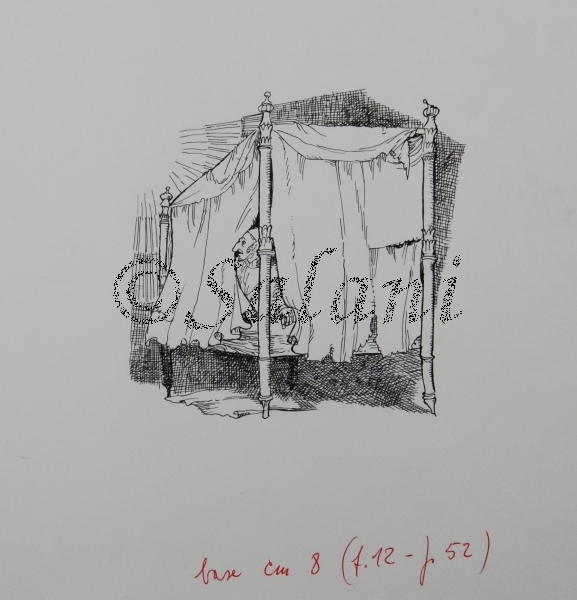 ©Salani
base cm 8 (f.12 - p. 52)